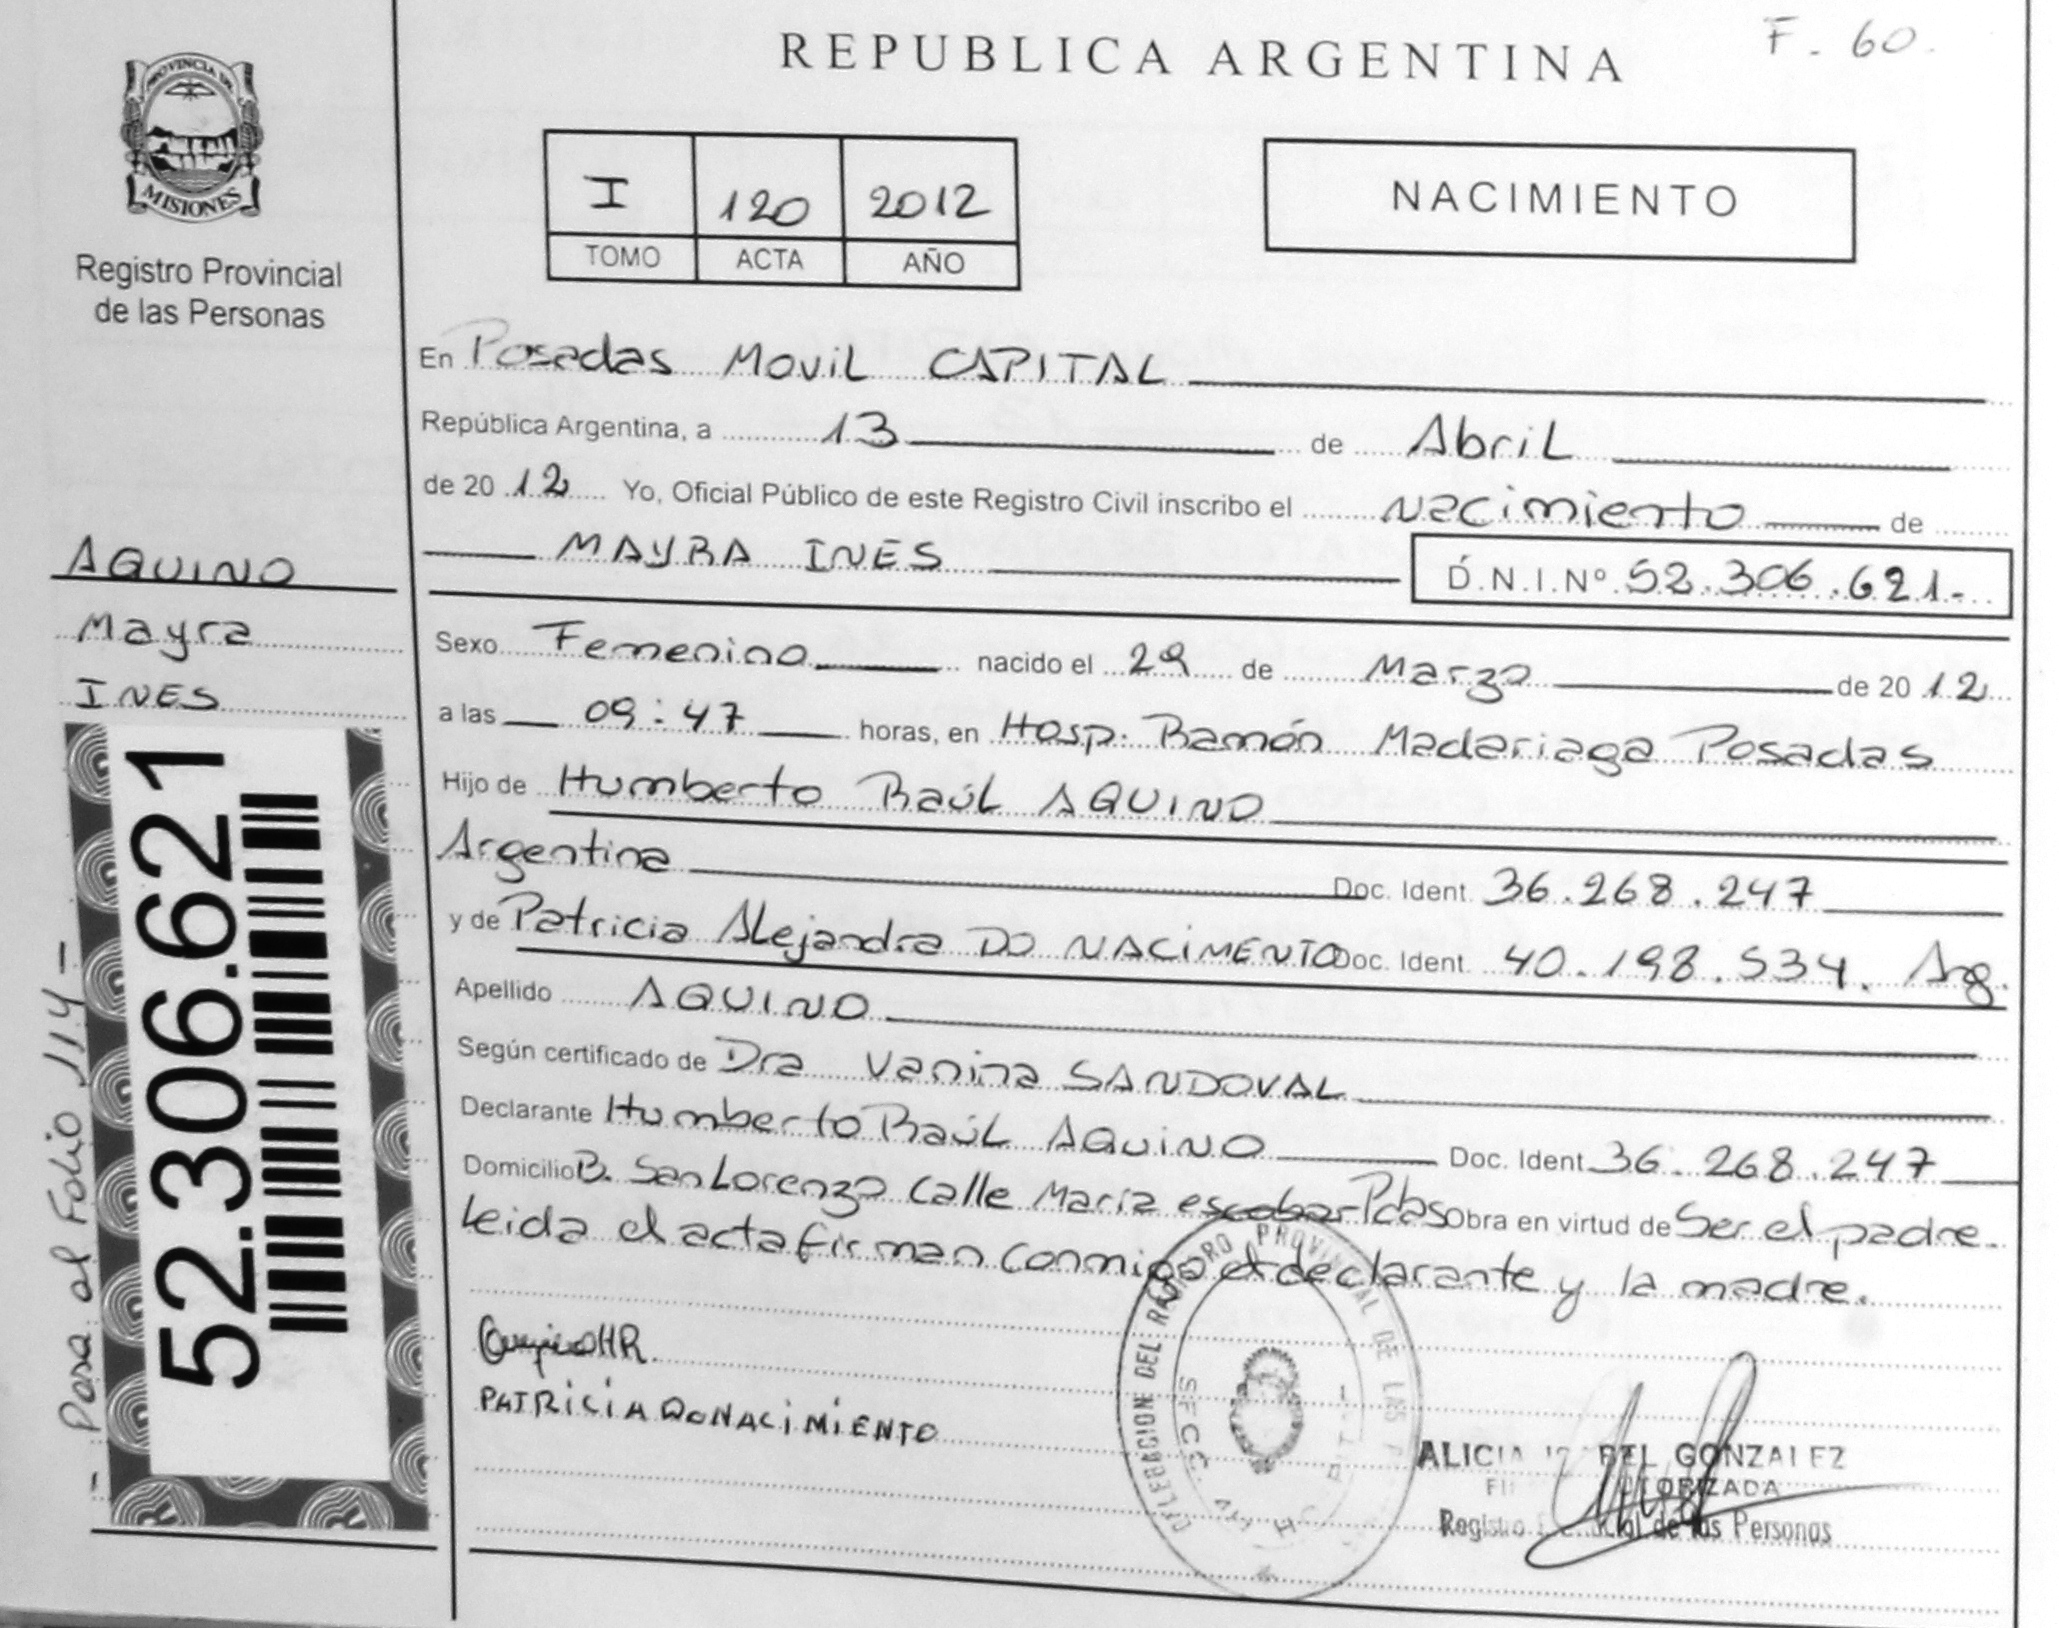 F. 60.
REPUBLICA ARGENTINA
PROVINCIA DE
MISIONES
Registro Provincial
de las Personas
I 120 2012
TOMO ACTA AÑO
NACIMIENTO
En Posadas MOVIL CAPITAL
República Argentina, a 13 de Abril
de 2012 Yo, Oficial Público de este Registro Civil inscribo el Nacimiento de
MAYRA INES D.N.I.Nº 52.306.621.-
AQUINO
Mayra
INES
52.306.621
- Pasa al Folio 114 -
Sexo Femenino nacido el 29 de Marzo de 2012
a las 09:47 horas, en Hosp. Ramón Madariaga Posadas
Hijo de Humberto Raúl AQUINO
Argentina Doc. Ident. 36.268.247
y de Patricia Alejandra DO NACIMENTO Doc. Ident. 40.198.534. Arg.
Apellido AQUINO
Según certificado de Dra Vanina SANDOVAL
Declarante Humberto Raúl AQUINO Doc. Ident. 36.268.247
Domicilio B. San Lorenzo Calle María escobar Pdas Obra en virtud de Ser el padre.
Leida el acta firman conmigo el declarante y la madre.
HR.
PATRICIA DO NACIMIENTO
DELEGACION DEL REGISTRO PROVINCIAL DE LAS
SECC.
ALICIA GONZALEZ
Registro de las Personas